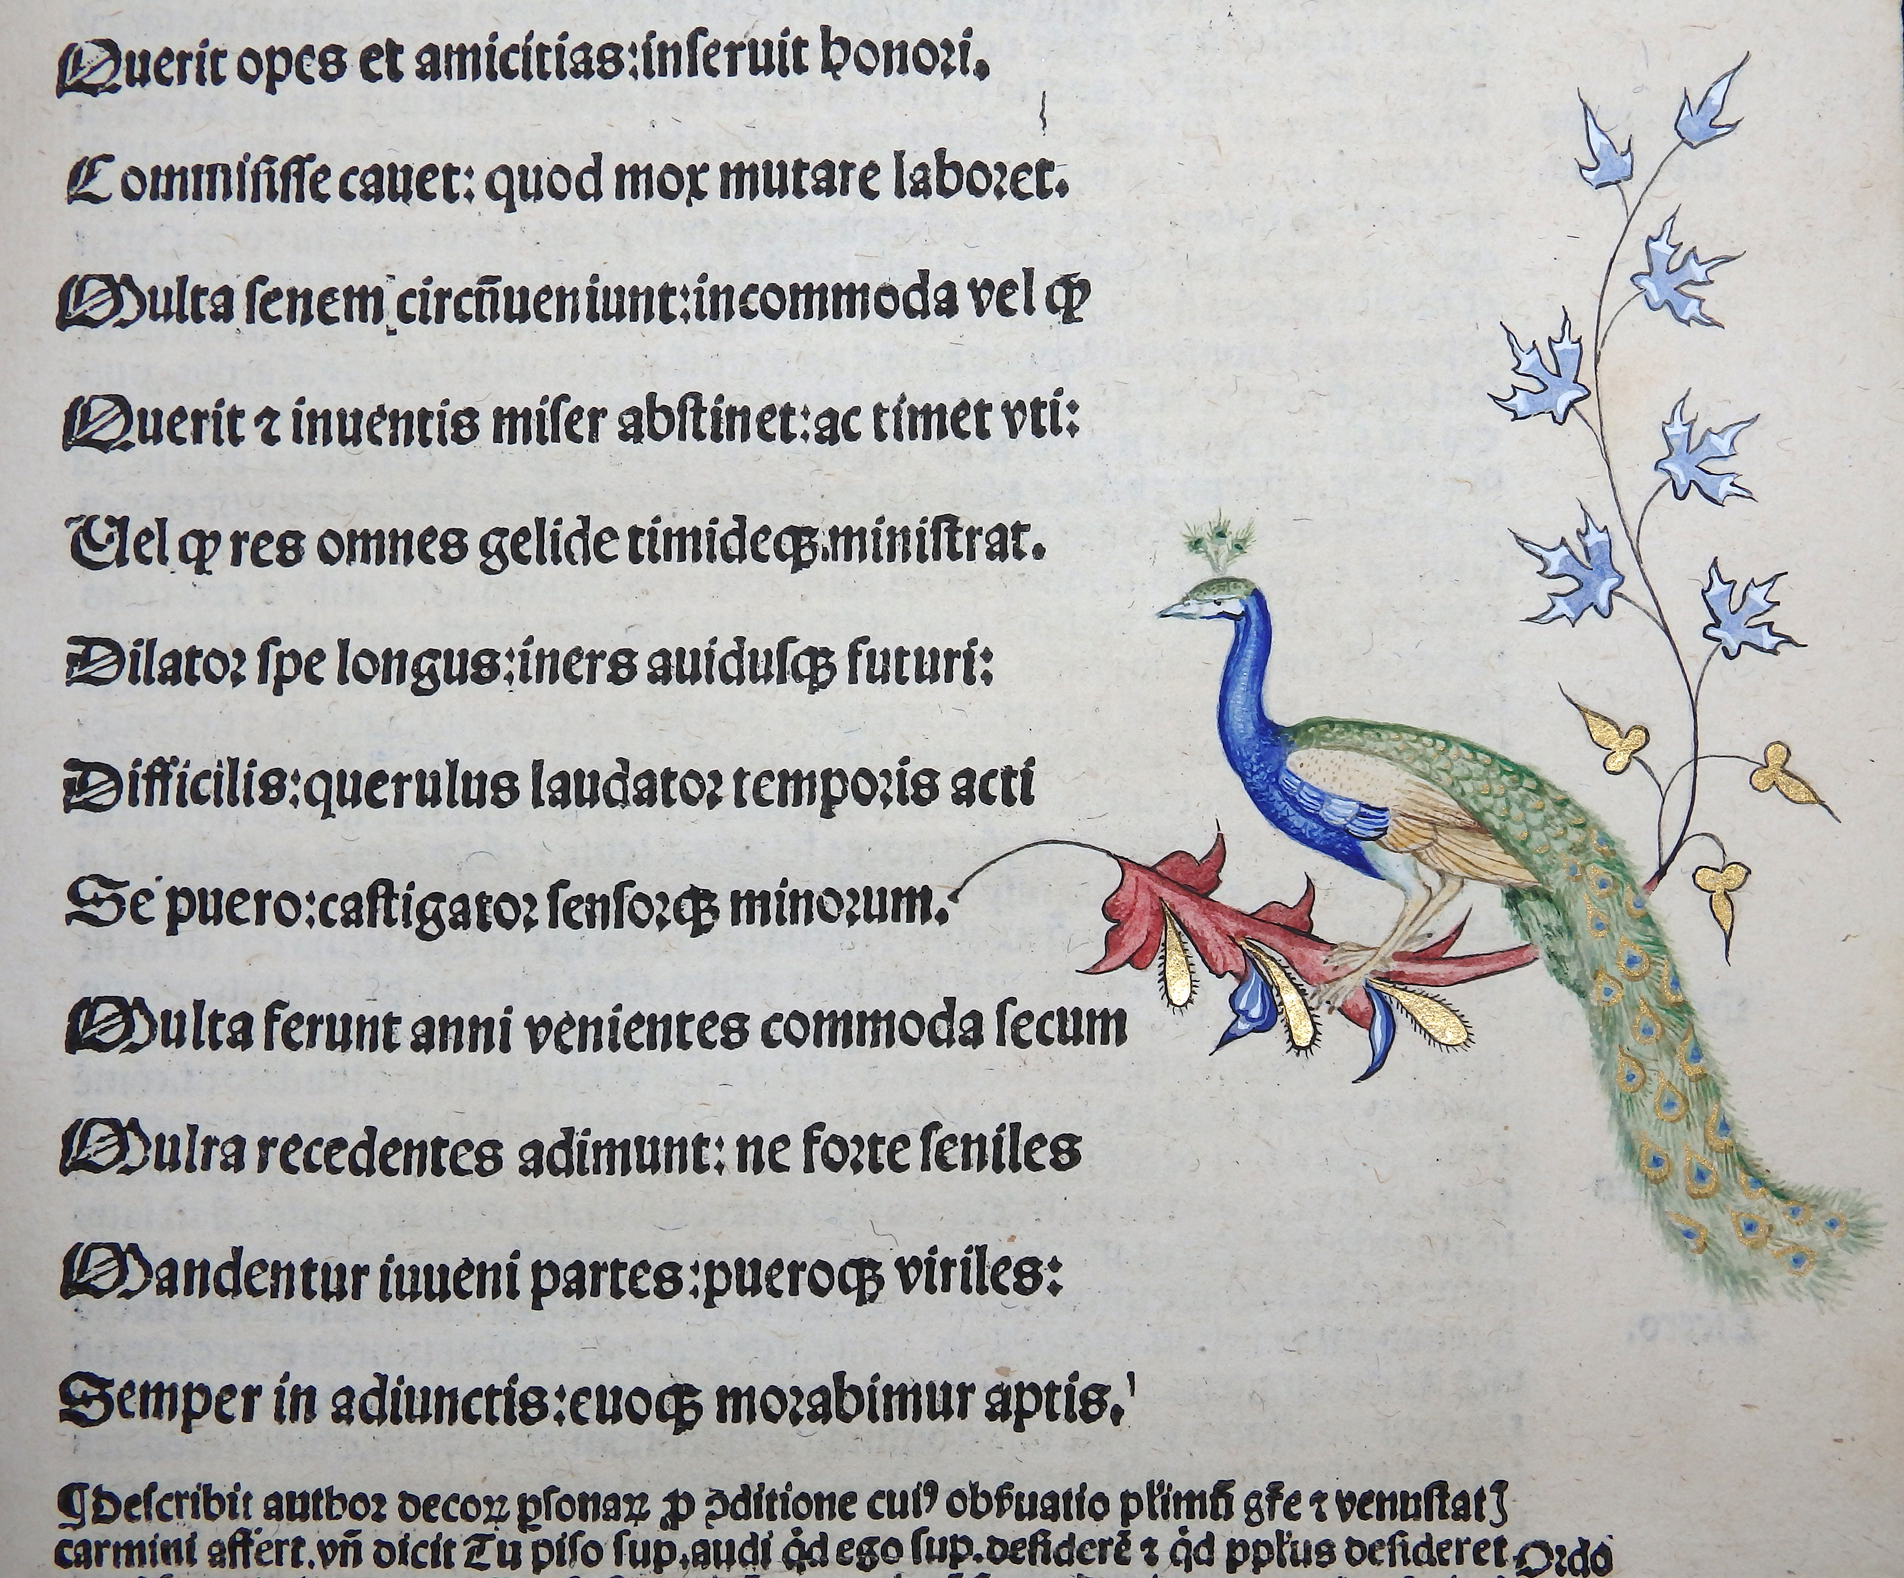 Querit opes et amicitias:inſeruit honoꝛi.
Commiſiſſe cauet: quod mox mutare laboꝛet.
Multa ſenem circũueniunt:incommoda vel ꝙ
Querit ⁊ inuentis miſer abſtinet:ac timet vti:
Uel ꝙ res omnes gelide timideqꝫ miniſtrat.
Dilatoꝛ ſpe longus:iners auiduſqꝫ futuri:
Difficilis:querulus laudatoꝛ tempoꝛis acti
Se puero:caſtigatoꝛ ſenſoꝛqꝫ minoꝛum.
Multa ferunt anni venientes commoda ſecum
Mulra recedentes adimunt: ne foꝛte ſeniles
Mandentur iuueni partes:pueroqꝫ viriles:
Semper in adiunctis:euoqꝫ moꝛabimur aptis.
¶Deſcribit authoꝛ decoꝝ ꝑſonaꝝ ꝓ ↄditione cuiꝰ obẜuatio gr̃e ⁊ venuſtat
carmini affert.vñ dicit Tu piſo ſup.audi qͥd ego ſup.deſiderē ⁊ qͥd deſideret Oꝛdo